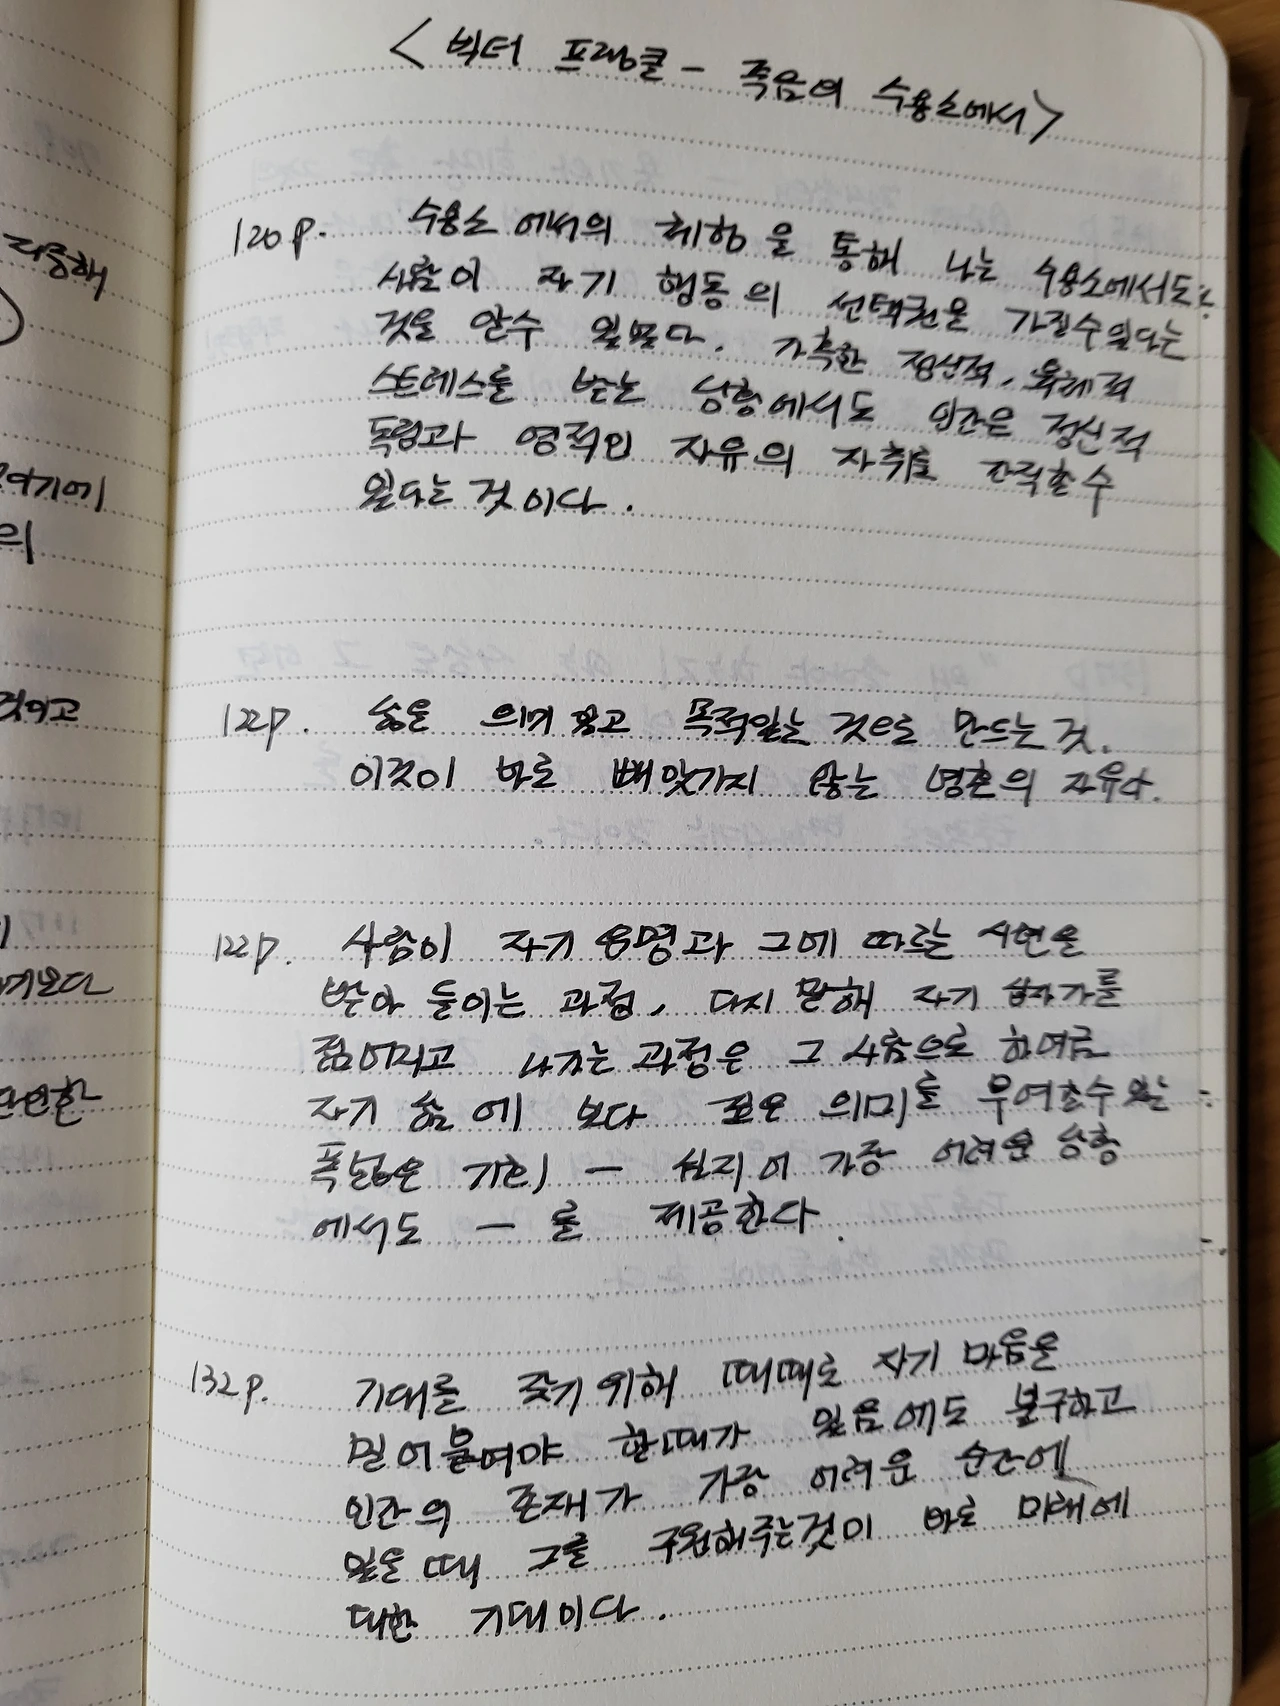 < 빅터 프랭클 - 죽음의 수용소에서>
120p. 수용소에서의 체험을 통해 나는 수용소에서도
사람이 자기 행동의 선택권을 가질수 있다는
것을 알수 있었다. 가혹한 정신적, 육체적
스트레스를 받는 상황에서도 인간은 정신적
독립과 영적인 자유의 자취를 간직할수
있다는 것이다.
122p. 삶을 의미 있고 목적있는 것으로 만드는 것.
이것이 바로 빼앗기지 않는 영혼의 자유다.
122p. 사람이 자기 운명과 그에 따르는 시련을
받아 들이는 과정, 다시 말해 자기 십자가를
짊어지고 나가는 과정은 그 사람으로 하여금
자기 삶에 보다 깊은 의미를 부여할수 있는
폭넓은 기회 - 심지어 가장 어려운 상황
에서도 - 를 제공한다.
132p. 기대를 갖기 위해 때때로 자기 마음을
밀어붙여야 할때가 있음에도 불구하고
인간의 존재가 가장 어려운 순간에
있을 때 그를 구원해주는것이 바로 미래에
대한 기대이다.
다중해
여기에
의
것이고
겨온다
단련한